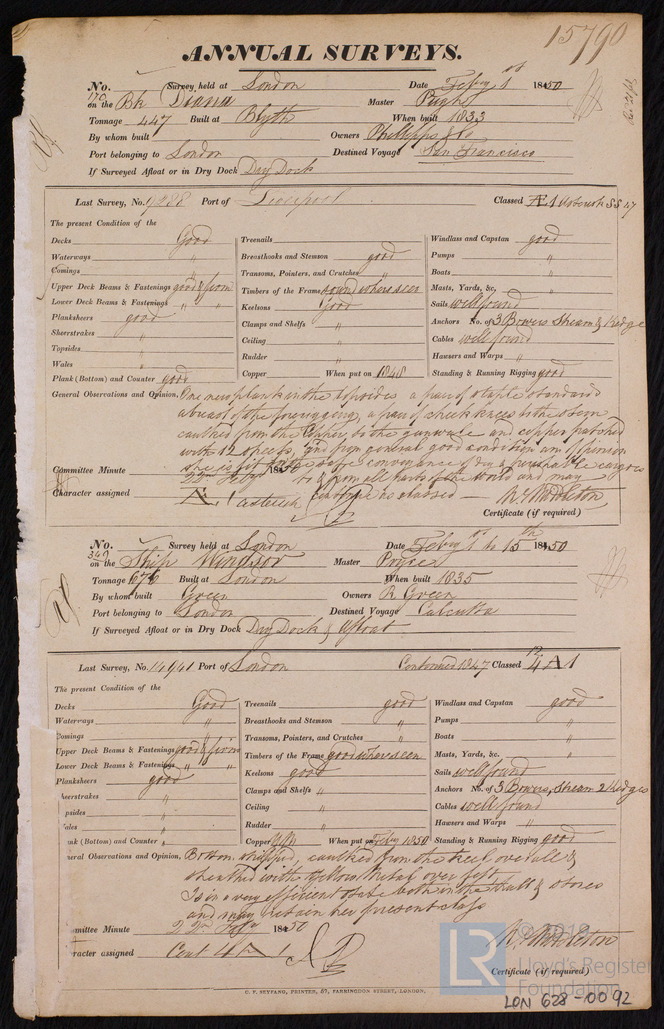 15790
ANNUAL SURVEYS.
No. 170 Survey held at London Date Feby 1st 1850
on the Bk Diana Master Pugh
Tonnage 447 Built at Blyth When built 1833
By whom built Owners Phillipps & Co
Port belonging to London Destined Voyage San Francisco
If Surveyed Afloat or in Dry Dock Dry Dock
Last Survey, No. 9288 Port of Liverpool Classed Æ1
The present Condition of the
Decks Good
Waterways "
Comings "
Upper Deck Beams & Fastenings good & firm
Lower Deck Beams & Fastenings " "
Planksheers good
Sheerstrakes "
Topsides "
Wales "
Plank (Bottom) and Counter good
Treenails
Breasthooks and Stemson good
Transoms, Pointers, and Crutches "
Timbers of the Frame sound where seen
Keelsons Good
Clamps and Shelfs "
Ceiling "
Rudder "
Copper When put on 1848
Windlass and Capstan good
Pumps "
Boats "
Masts, Yards, &c. "
Sails well found
Anchors No. of 3 Bowers Stream & Kedge
Cables well found
Hawsers and Warps "
Standing & Running Rigging good
General Observations and Opinion, One new plank in the topsides a pair of staple standards
abreast of the fore rigging, a pair of cheek knees to the stem
caulked from the Copper to the gunwale and copper patched
with 12 sheets, and from general good condition am of opinion
she is fit for the safe conveyance of dry & perishable cargoes
to & from all parts of the world and may
Committee Minute 22nd Feby 1850
Character assigned Æ 1 Asterisk
Certificate (if required)
No. 349 Survey held at London Date Feby 1st to 15th 1850
on the Ship Windsor Master Pryce
Tonnage 676 Built at London When built 1835
By whom built Green Owners R Green
Port belonging to London Destined Voyage Calcutta
If Surveyed Afloat or in Dry Dock Dry Dock & Afloat
Last Survey, No. 14941 Port of London Continued 1847 Classed 12/4 A 1
The present Condition of the
Decks Good
Waterways "
Comings "
Upper Deck Beams & Fastenings good & firm
Lower Deck Beams & Fastenings " "
Planksheers good
heerstrakes "
psides "
ales "
nk (Bottom) and Counter "
Treenails good
Breasthooks and Stemson "
Transoms, Pointers, and Crutches "
Timbers of the Frame good where seen
Keelsons good
Clamps and Shelfs "
Ceiling "
Rudder "
Copper YM When put on Feby 1850
Windlass and Capstan good
Pumps "
Boats "
Masts, Yards, &c. "
Sails well found
Anchors No. of 3 Bowers, Stream 2 Kedges
Cables well found
Hawsers and Warps "
Standing & Running Rigging good
eral Observations and Opinion, Bottom stripped, caulked from the keel overall &
sheathed with Yellow Metal over felt
Is in a very efficient state both in the Hull & stores
and may retain her present class
mmittee Minute 22nd Feby 1850
racter assigned Cont 4 A 1
Certificate (if required)
C. F. SEYFANG, PRINTER, 57, FARRINGDON STREET, LONDON.
© 2019
LR Lloyd's Register
Foundation
LON 628-0092